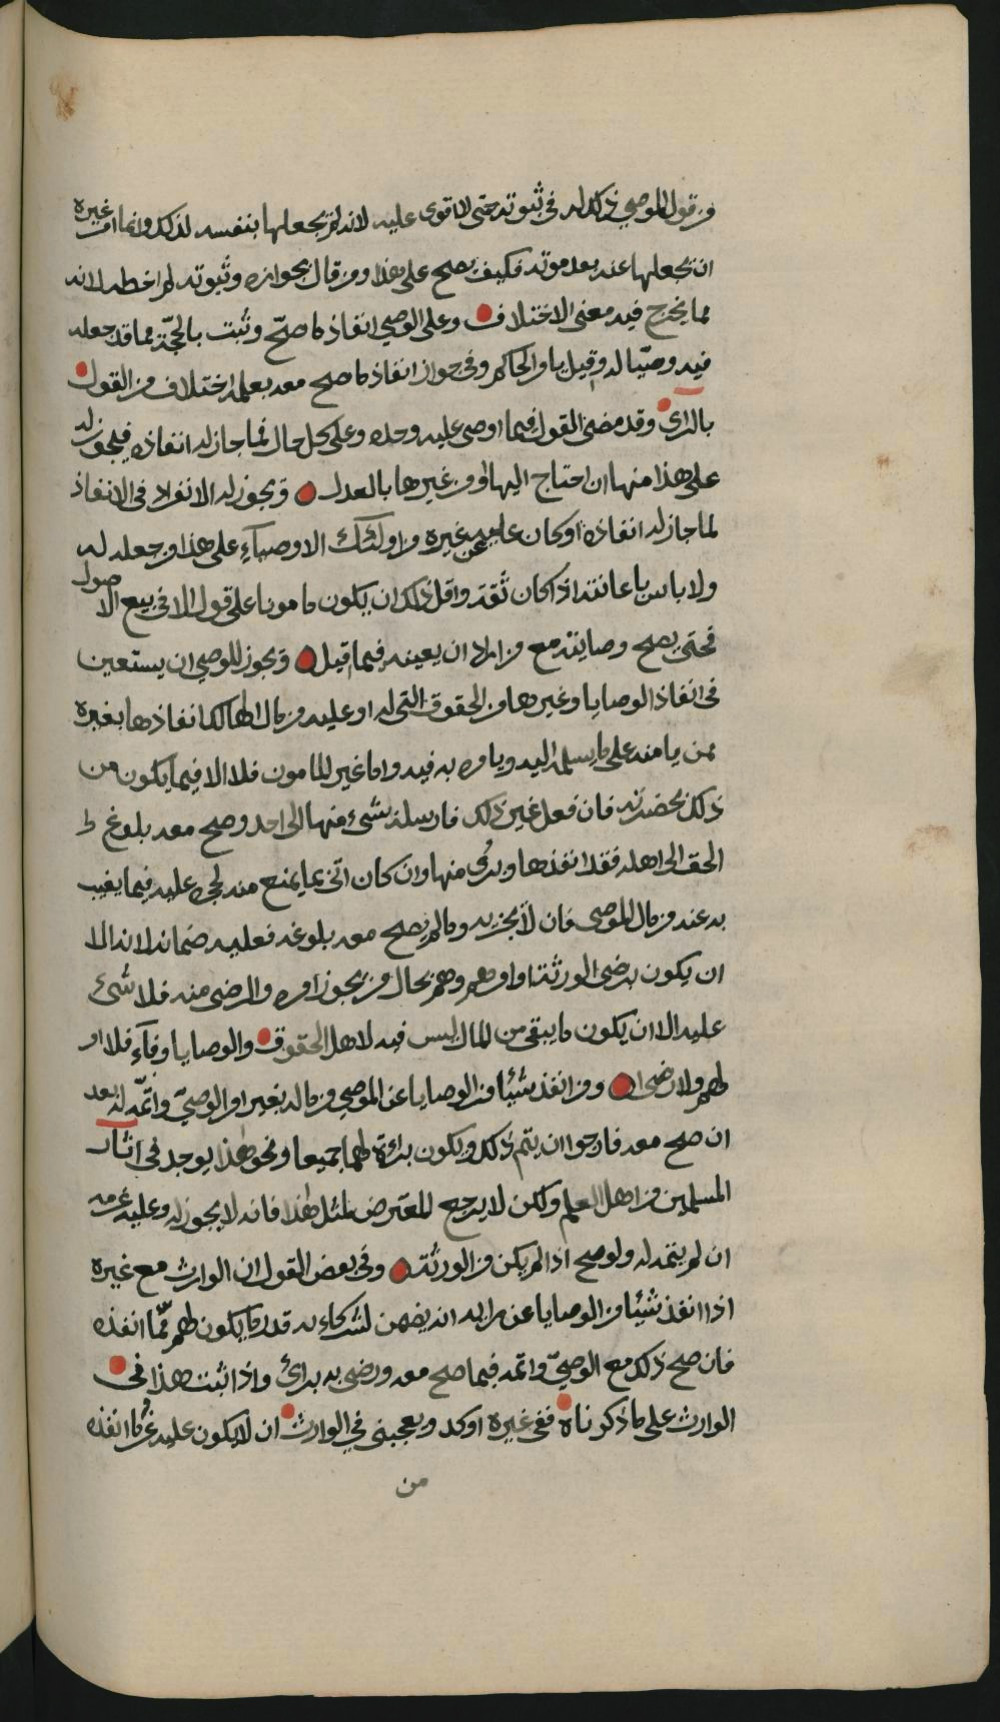 من قول الموصي ذكر له في ثبوته حتى الاقوى عليه لانه لم يجعلها بنفسه لذلك وانما امر غيره
ان يجعلها عنه بعد موته فكيف يصح على هذا ومن قال بجوازه وثبوته لم اخطه لانه
مما يخرج فيه معنى الاختلاف وعلى الوصي انفاذ ما صحّ وثبت بالحجّة مما قد جعله
فيه وصيّا له وقيل بامر الحاكم وفي جواز انفاذ ما صح معه بعلمه اختلاف من القول
بالراي وقد مضى القول فيما اوصى عليه وحده وعلى كل حال فما جاز له انفاذه فيجوز له
على هذا منها ان احتاج اليها او من غيرها بالعدل ويجوز له الانفراد في الانفاذ
لما جاز له انفاذه او كان عليه عن غيره من اولئك الاوصياء على هذا من جعله له
ولا باس باعانته اذا كان ثقة واقل ذلك ان يكون مامونا على قول الا في بيع الاصول
فحتى يصح وصايته مع من اراد ان يعينه فيما قيل ويجوز للوصي ان يستعين
في انفاذ الوصايا وغيرها من الحقوق التي له او عليه من مال الهالك انفاذها بغيره
ممن يامنه على ما يسلمه اليه ويامره به فيه واما غير المامون فلا الا فيما يكون من
ذلك بحضرته فان فعل غير ذلك فارسله بشيء منها الى احد وصح معه بلوغ
الحق الى اهله فقد انفذها وبرئ منها وان كان اتى بما يمنع منه لحجره عليه فيما يغيب
به عنه من مال الموصي فان لا يجزيه وما لم يصح معه بلوغه فعليه ضمانه لانه الا
ان يكون برضى الورثة او امرهم وهم بحال من يجوز امره والرضى منه فلا شيء
عليه الا ان يكون ما يبقى من المال ليس فيه لاهل الحقوق والوصايا وفاء فلا امر
لهم ولا رضى ومن انفذ شيئا من الوصايا عن الموصي من ماله بغير امر الوصيّ واتمّه له بعد
ان صح معه فارجو ان يتم ذلك ويكون براءة لهما جميعا ونحو هذا يوجد في اثار
المسلمين من اهل العلم ولكن لا يرجع المعترض لمثل هذا فانه لا يجوز له وعليه غرمه
ان لم يتمه له ولو صح اذا لم يكن من الورثة وفي بعض القول ان الوارث مع غيره
اذا انفذ شيئا من الوصايا عن رايه انه يضمن لشركاءه قدر ما يكون لهم ممّا انفذه
فان صح ذلك مع الوصيّ واتمه فيما صح معه ورضي به برئ واذا ثبت هذا في
الوارث على ما ذكرناه ففي غيره اوكد ويعجبني في الوارث ان لا يكون عليه غرم ما انفذه
من